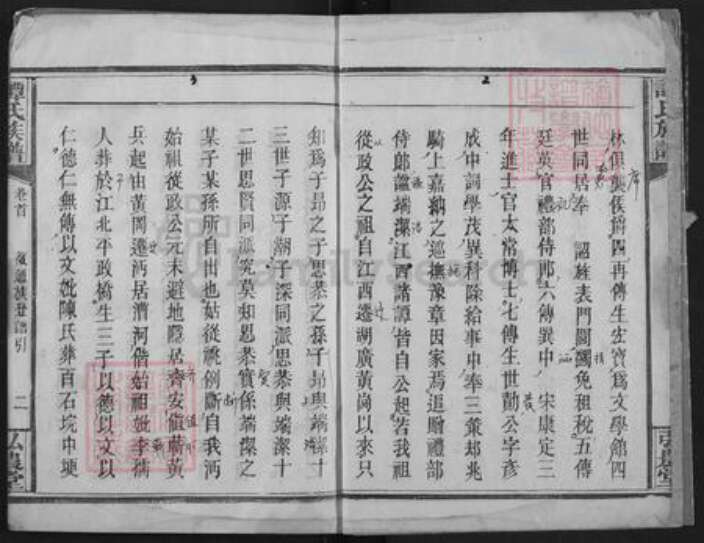 林俱襲侯爵四冉傳生宏寶爲文學館四
世同居奉 詔旌表門閭蠲免租稅五傳
廷英官禮部侍郎六傳巽中 宋康定三
年進士官太常博士七傳生世勣公字彥
成中詞學茂異科除給事中奉三策郊兆
騎上嘉納之巡撫豫章因家焉追贈禮部
侍郎諡端潔江西諸譚皆自公起若我祖
從政公之祖自江西遷湖廣黃崗以來只
知爲子昂之子思恭之孫子昂與端潔十
三世子源子潮子深同派思恭與端潔十
二世思賢同派究莫知思恭實係端潔之
某子某孫所自出也姑從祧例斷自我沔
始祖從政公元末避地隱居齊安值蘄黃
兵起由黃岡遷沔居漕河偕始祖妣李孺
人葬於江北平政橋生三子以德以文以
仁德仁無傳以文妣陳氏葬百石垸中埂
譚氏族譜
卷首
引
二
弘農堂